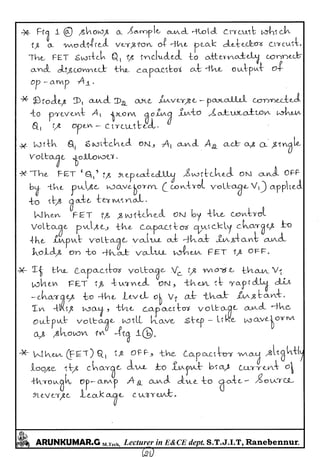 * Fig 1 ⓐ shows a Sample and-Hold Circuit which
is a modified version of the peak detector circuit.
The FET switch Q1 is included to alternately connect
and disconnect the capacitor at the output of
op-amp A1.
* Diodes D1 and D2 are inverse-parallel connected
to prevent A1 from going into saturation when
Q1 is open-circuited.
* With Q1 switched ON, A1 and A2 act as a single
voltage follower.
* The FET 'Q1' is repeatedly switched ON and OFF
by the pulse waveform (control voltage V1) applied
to its gate terminal.
When FET is switched ON by the control
voltage pulse, the capacitor quickly charges to
the input voltage value at that instant and
holds on to that value when FET is OFF.
* If the capacitor voltage Vc is more than Vi
when FET is turned ON, then it rapidly dis
-charges to the level of Vi at that instant.
In this way, the capacitor voltage and the
output voltage will have step-like waveform
as shown in fig 1ⓑ.
* When (FET) Q1 is OFF, the capacitor may slightly
loose its charge due to input bias current of
through op-amp A2 and due to gate-source
reverse leakage current.
ARUNKUMAR.G M.Tech, Lecturer in E&CE dept. S.T.J.I.T, Ranebennur.